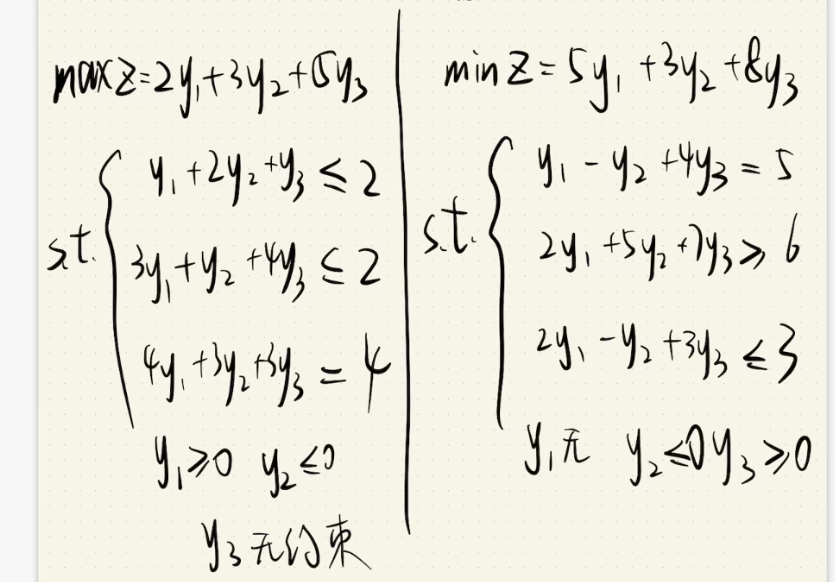 max z = 2y₁ + 3y₂ + 5y₃
s.t.
y₁ + 2y₂ + y₃ ≤ 2
3y₁ + y₂ + 4y₃ ≤ 2
4y₁ + 3y₂ + 3y₃ = 4
y₁ ≥ 0 y₂ ≤ 0
y₃ 无约束
min z = 5y₁ + 3y₂ + 8y₃
s.t.
y₁ - y₂ + 4y₃ = 5
2y₁ + 5y₂ + 7y₃ ≥ 6
2y₁ - y₂ + 3y₃ ≤ 3
y₁ 无 y₂ ≤ 0 y₃ ≥ 0